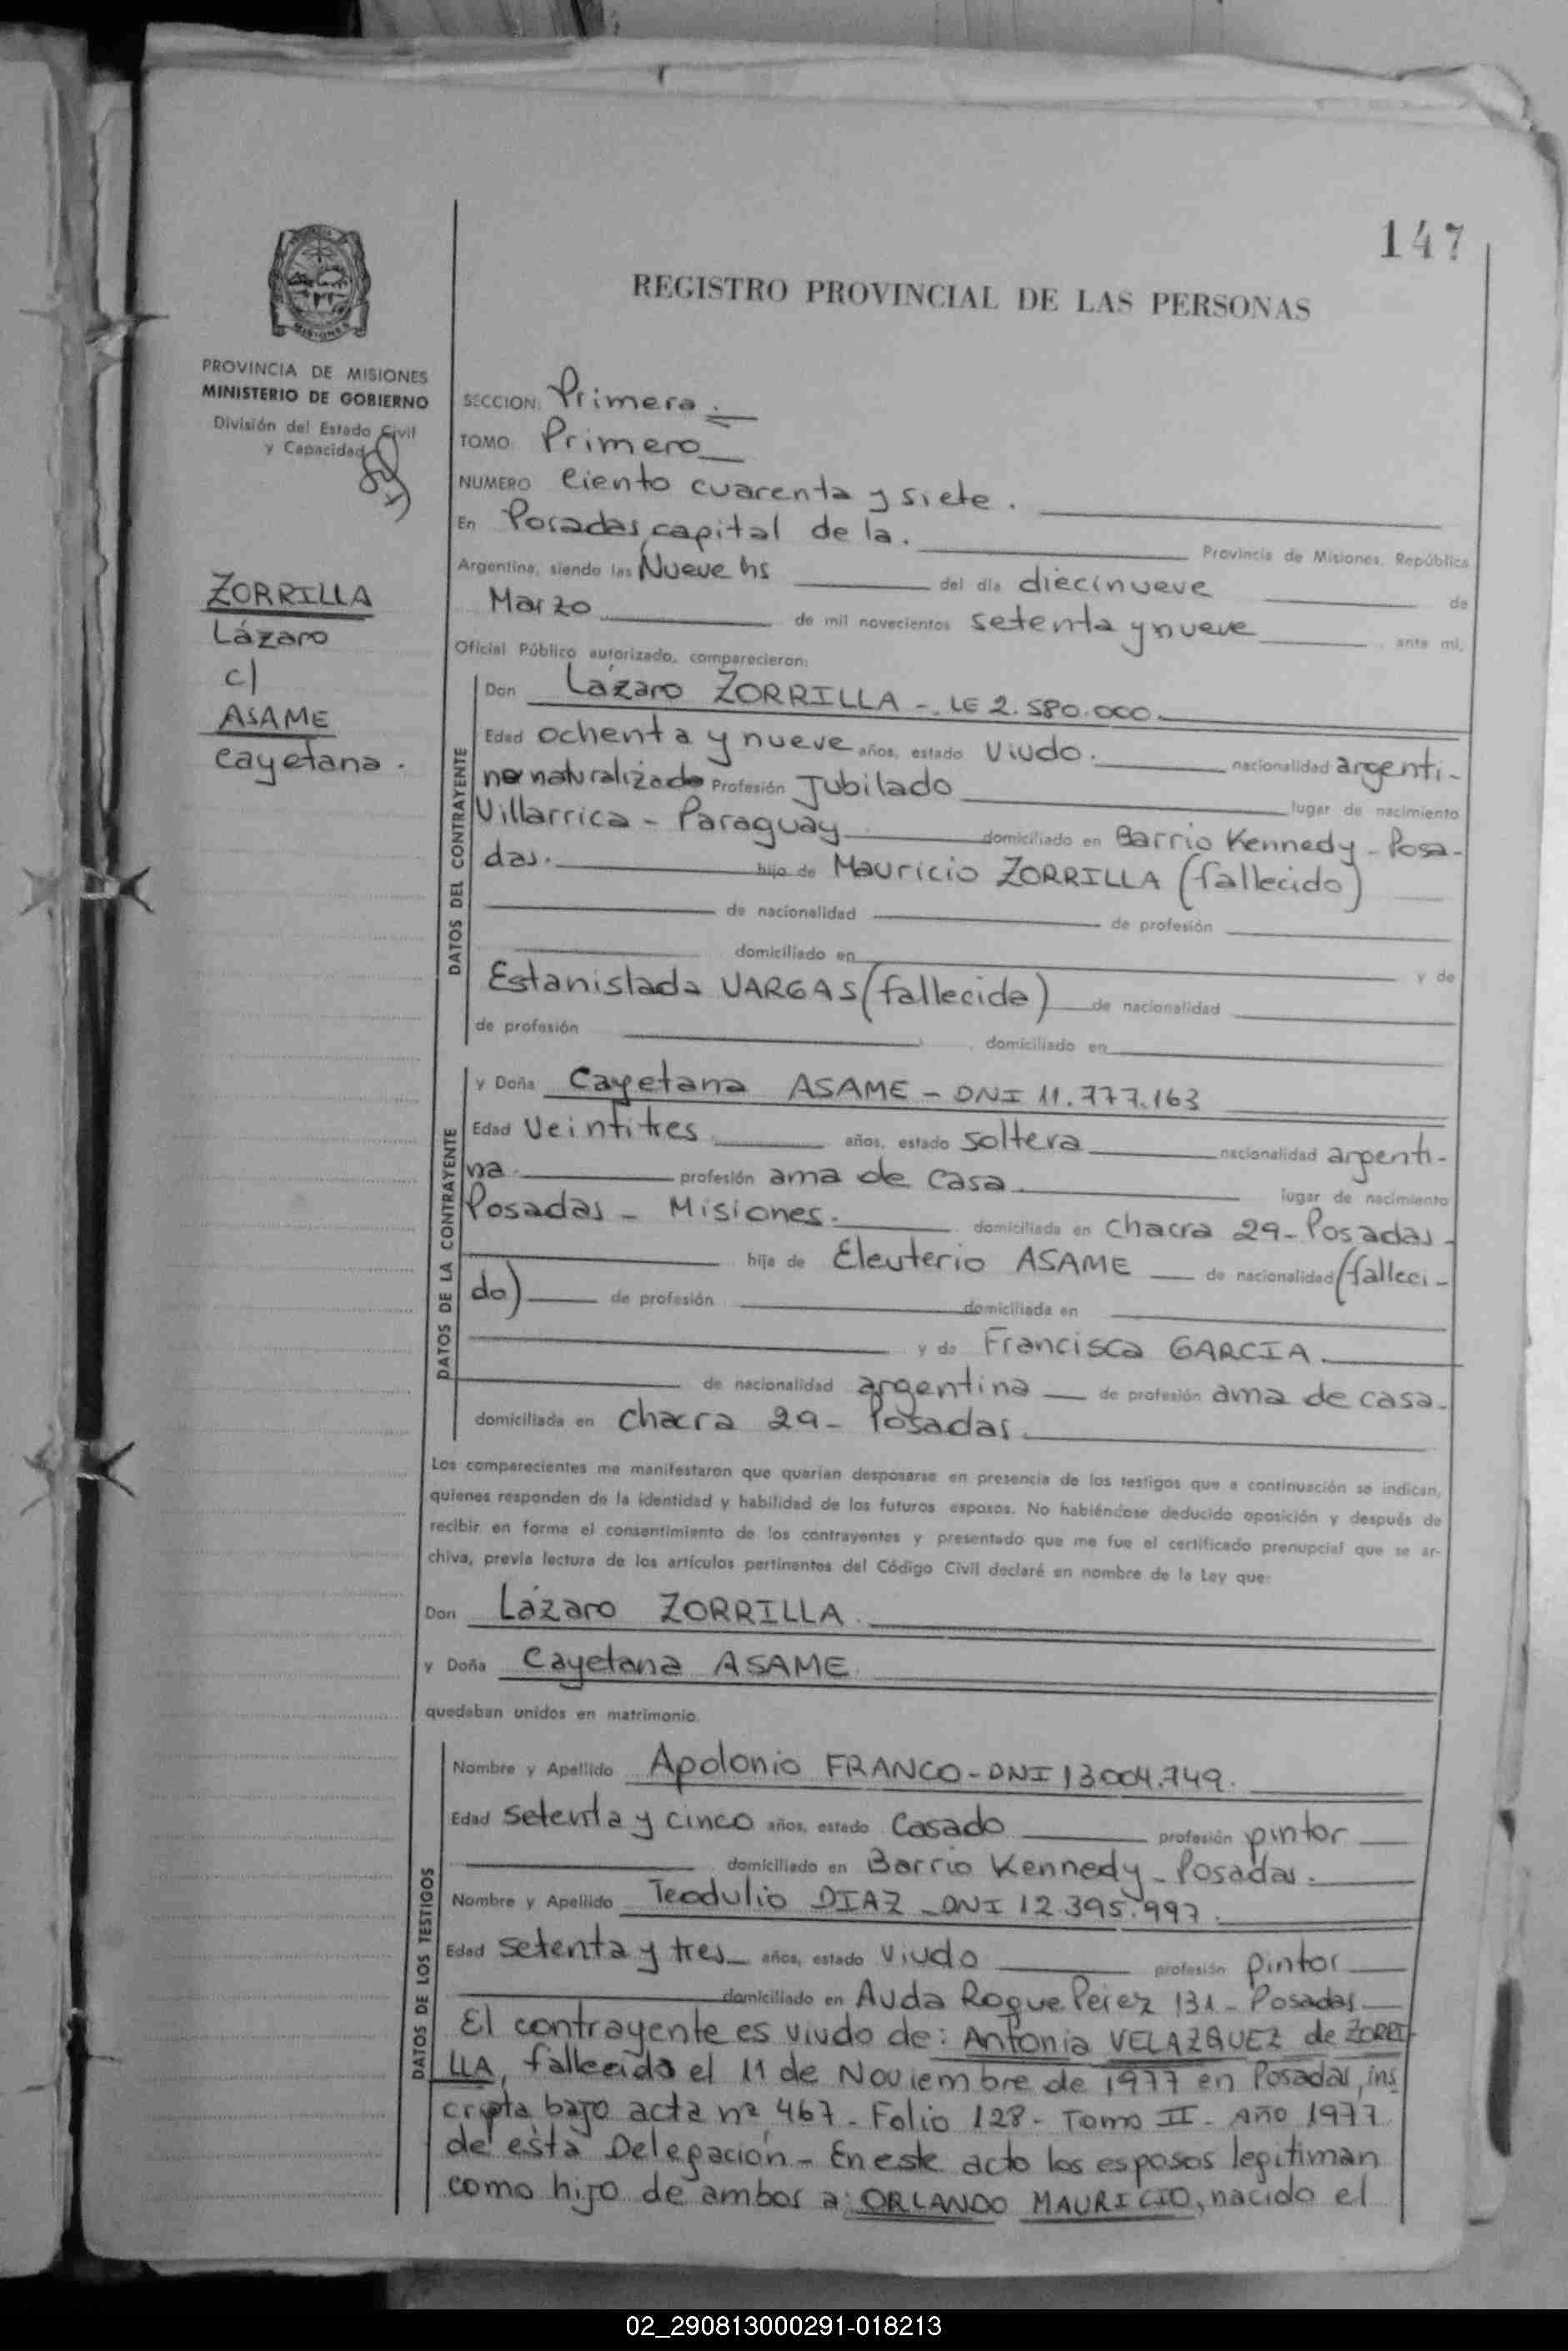 147
REGISTRO PROVINCIAL DE LAS PERSONAS
MISIONES
PROVINCIA DE MISIONES
MINISTERIO DE GOBIERNO
División del Estado Civil
y Capacidad
ZORRILLA
Lázaro
c/
ASAME
Cayetana.
SECCION: Primera.
TOMO Primero
NUMERO Ciento cuarenta y siete.
En Posadas, capital de la. Provincia de Misiones, República
Argentina, siendo las Nueve hs del día diecinueve de
Marzo de mil novecientos setenta y nueve, ante mí,
Oficial Público autorizado, comparecieron:
DATOS DEL CONTRAYENTE
Don Lázaro ZORRILLA - LE 2.580.000.
Edad ochenta y nueve años, estado Viudo. nacionalidad argenti-
no naturalizado Profesión Jubilado lugar de nacimiento
Villarrica - Paraguay domiciliado en Barrio Kennedy - Posa-
das. hijo de Mauricio ZORRILLA (fallecido)
de nacionalidad de profesión
domiciliado en y de
Estanislada VARGAS (fallecida) de nacionalidad
de profesión domiciliado en
DATOS DE LA CONTRAYENTE
y Doña Cayetana ASAME - DNI 11.777.163
Edad Veintitres años, estado soltera nacionalidad argenti-
na. profesión ama de casa. lugar de nacimiento
Posadas - Misiones. domiciliada en Chacra 29 - Posadas -
hija de Eleuterio ASAME de nacionalidad (falleci-
do) de profesión domiciliada en
y de Francisca GARCIA.
de nacionalidad argentina de profesión ama de casa.
domiciliada en Chacra 29 - Posadas.
Los comparecientes me manifestaron que querían desposarse en presencia de los testigos que a continuación se indican,
quienes responden de la identidad y habilidad de los futuros esposos. No habiéndose deducido oposición y después de
recibir en forma el consentimiento de los contrayentes y presentado que me fue el certificado prenupcial que se ar-
chiva, previa lectura de los artículos pertinentes del Código Civil declaré en nombre de la Ley que:
Don Lázaro ZORRILLA.
y Doña Cayetana ASAME.
quedaban unidos en matrimonio.
DATOS DE LOS TESTIGOS
Nombre y Apellido Apolonio FRANCO - DNI 13004.749.
Edad setenta y cinco años, estado Casado profesión pintor
domiciliado en Barrio Kennedy - Posadas.
Nombre y Apellido Teodulio DIAZ - DNI 12.395.997.
Edad setenta y tres años, estado Viudo profesión pintor
domiciliado en Avda Roque Perez 131 - Posadas
El contrayente es viudo de: Antonia VELAZQUEZ de ZORRI-
LLA, fallecida el 11 de Noviembre de 1977 en Posadas, ins
cripta bajo acta nº 467 - Folio 128 - Tomo II - Año 1977
de esta Delegación - En este acto los esposos legitiman
como hijo de ambos a: ORLANDO MAURICIO, nacido el
02_290813000291-018213